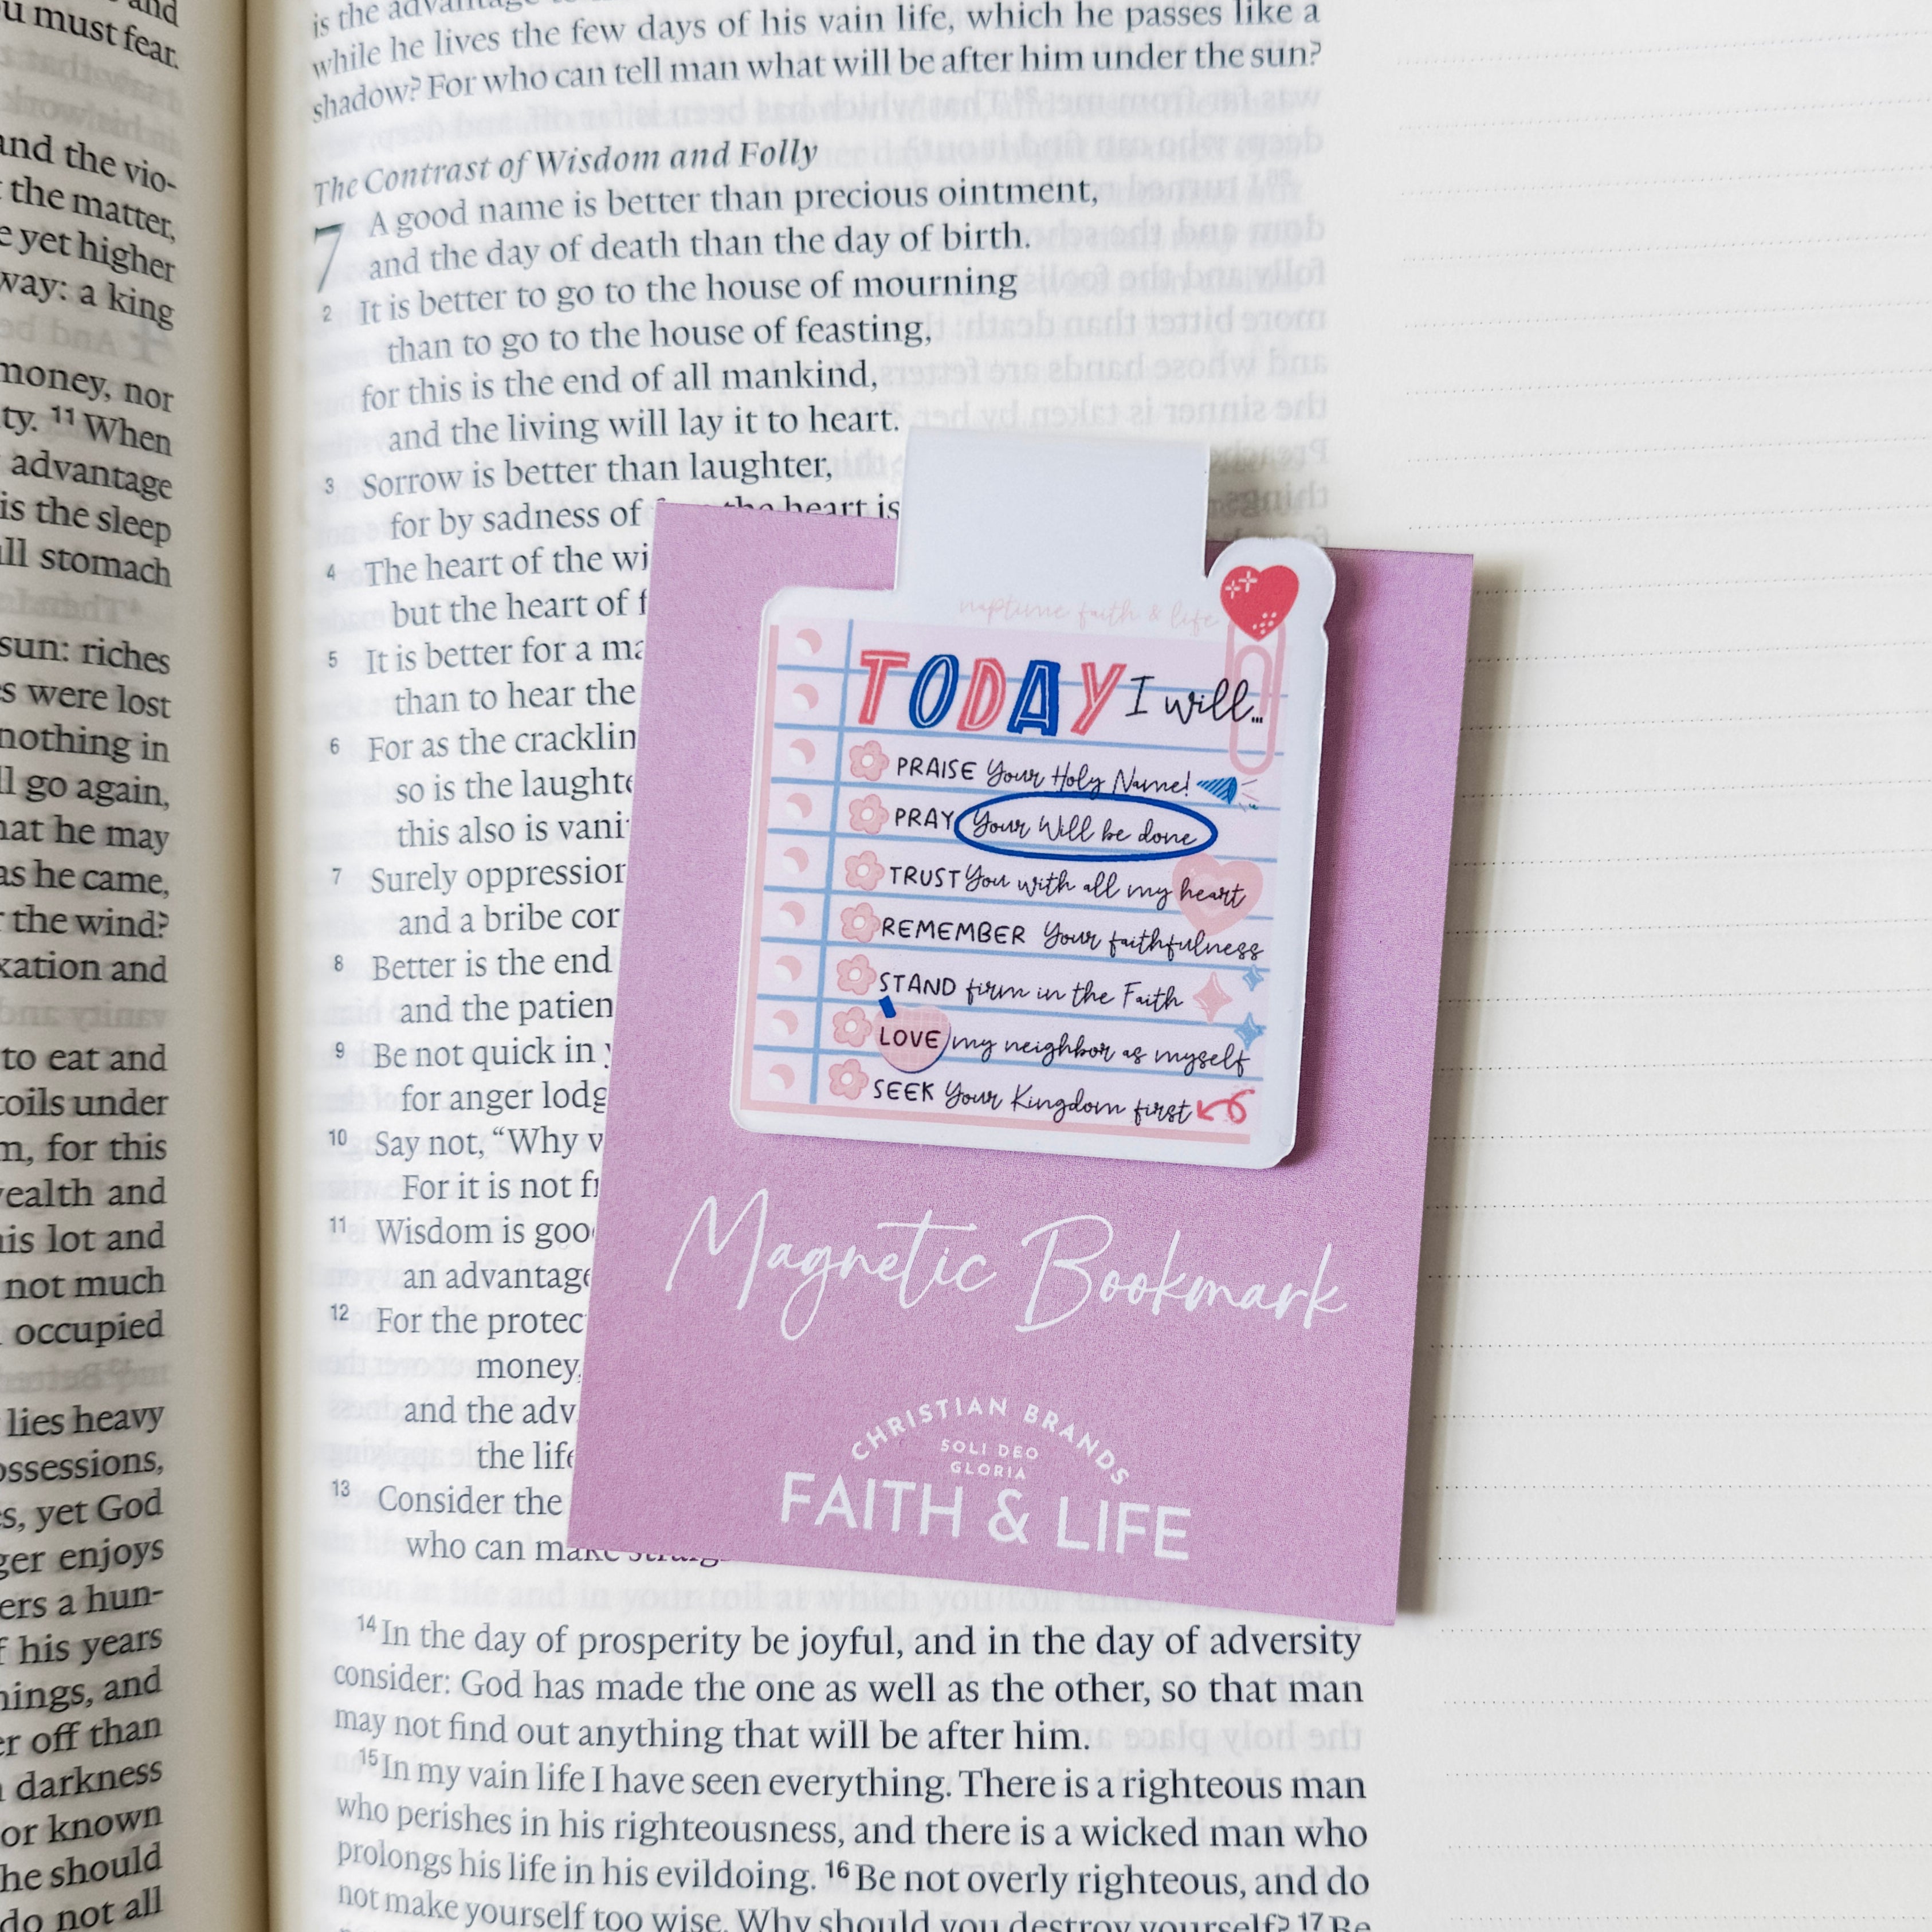 and
u must fear.
and the vio-
the matter,
e yet higher
way: a king
money, nor
ty. 11 When
advantage
is the sleep
ll stomach
sun: riches
s were lost
nothing in
ll go again,
hat he may
as he came,
the wind?
xation and
to eat and
toils under
m, for this
wealth and
his lot and
not much
occupied
lies heavy
ossessions,
s, yet God
ger enjoys
ers a hun-
f his years
hings, and
er off than
darkness
or known
he should
do not all
is the advantage
while he lives the few days of his vain life, which he passes like a
shadow? For who can tell man what will be after him under the sun?
The Contrast of Wisdom and Folly
7 A good name is better than precious ointment,
and the day of death than the day of birth.
2 It is better to go to the house of mourning
than to go to the house of feasting,
for this is the end of all mankind,
and the living will lay it to heart.
3 Sorrow is better than laughter,
for by sadness of the heart is
4 The heart of the wi
but the heart of f
5 It is better for a ma
than to hear the
6 For as the cracklin
so is the laughte
this also is vani
7 Surely oppression
and a bribe cor
8 Better is the end
and the patien
9 Be not quick in y
for anger lodg
10 Say not, “Why v
For it is not fr
11 Wisdom is goo
an advantage
12 For the protec
money,
and the adv
the life
13 Consider the
who can make straig
14 In the day of prosperity be joyful, and in the day of adversity
consider: God has made the one as well as the other, so that man
may not find out anything that will be after him.
15 In my vain life I have seen everything. There is a righteous man
who perishes in his righteousness, and there is a wicked man who
prolongs his life in his evildoing. 16 Be not overly righteous, and do
not make yourself too wise. Why should you destroy yourself? 17 Be
naptime faith & life
TODAY I will...
PRAISE Your Holy Name!
PRAY Your Will be done
TRUST You with all my heart
REMEMBER Your faithfulness
STAND firm in the Faith
LOVE my neighbor as myself
SEEK Your Kingdom first
Magnetic Bookmark
CHRISTIAN BRANDS
SOLI DEO
GLORIA
FAITH & LIFE